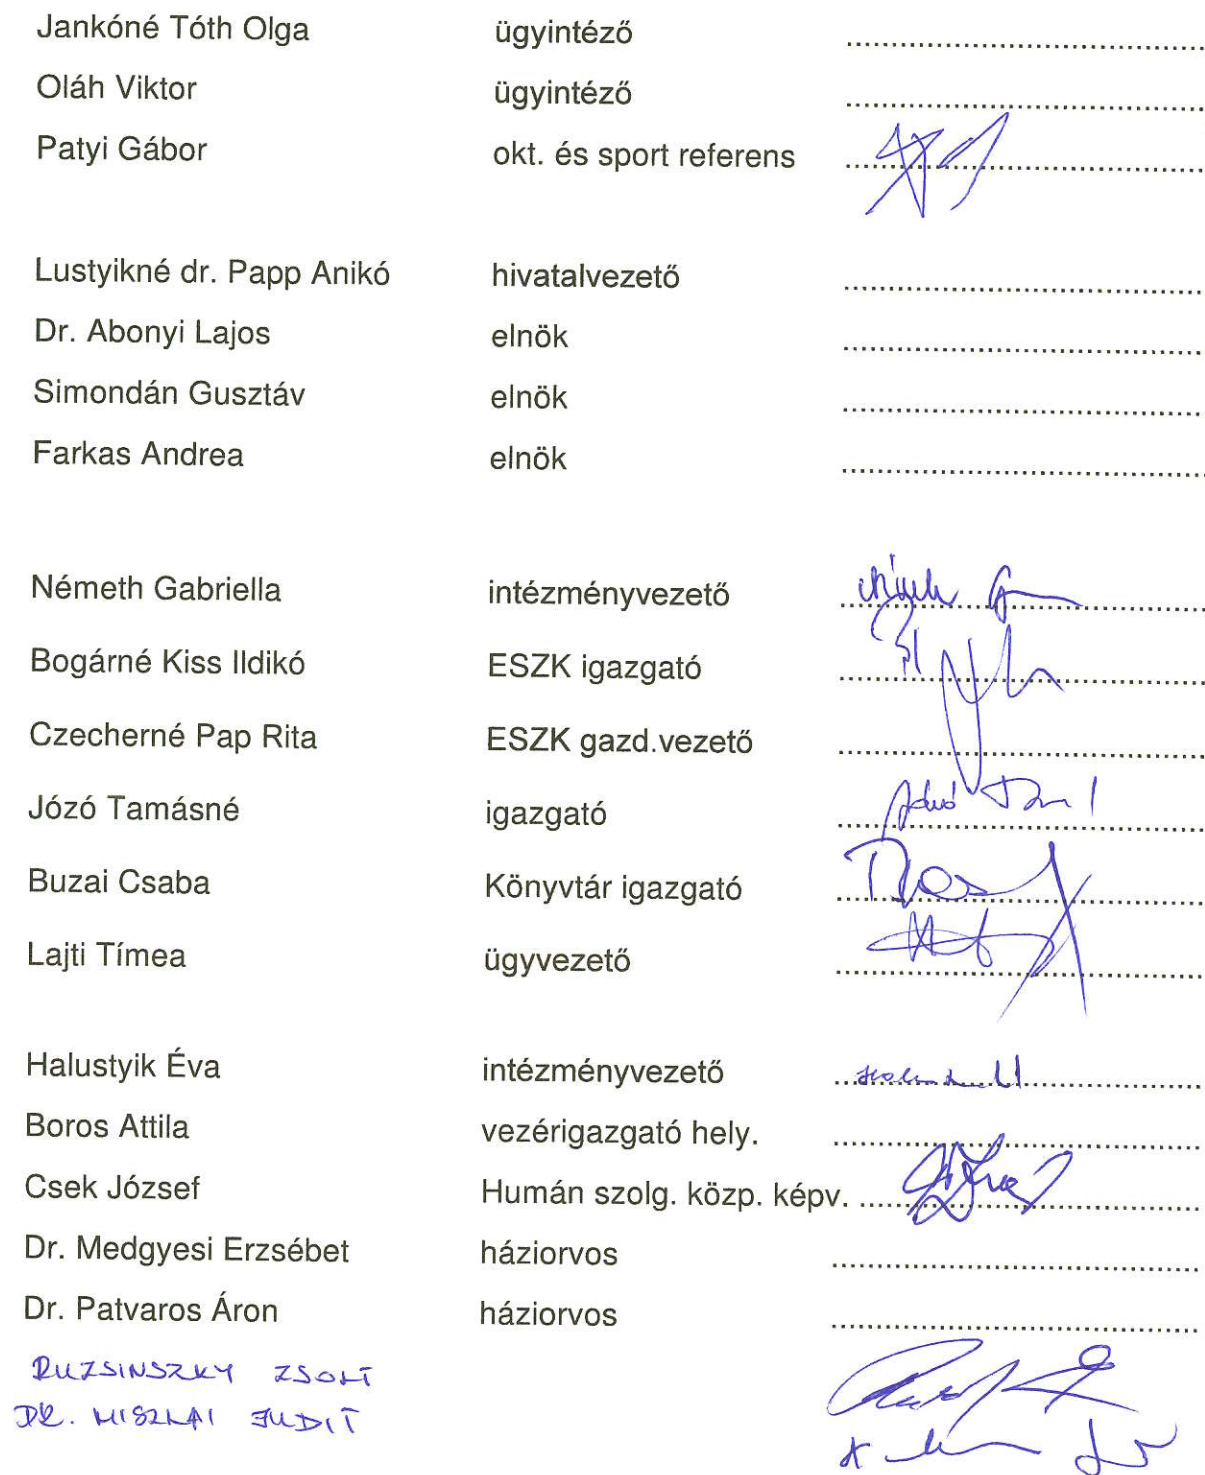 Jankóné Tóth Olga ügyintéző ........................................
Oláh Viktor ügyintéző ........................................
Patyi Gábor okt. és sport referens ........................................
Lustyikné dr. Papp Anikó hivatalvezető ........................................
Dr. Abonyi Lajos elnök ........................................
Simondán Gusztáv elnök ........................................
Farkas Andrea elnök ........................................
Németh Gabriella intézményvezető ........................................
Bogárné Kiss Ildikó ESZK igazgató ........................................
Czecherné Pap Rita ESZK gazd.vezető ........................................
Józó Tamásné igazgató ........................................
Buzai Csaba Könyvtár igazgató ........................................
Lajti Tímea ügyvezető ........................................
Halustyik Éva intézményvezető ........................................
Boros Attila vezérigazgató hely. ........................................
Csek József Humán szolg. közp. képv. ........................................
Dr. Medgyesi Erzsébet háziorvos ........................................
Dr. Patvaros Áron háziorvos ........................................
RUZSINSZKY ZSOLT
DR. MISZLAI JUDIT